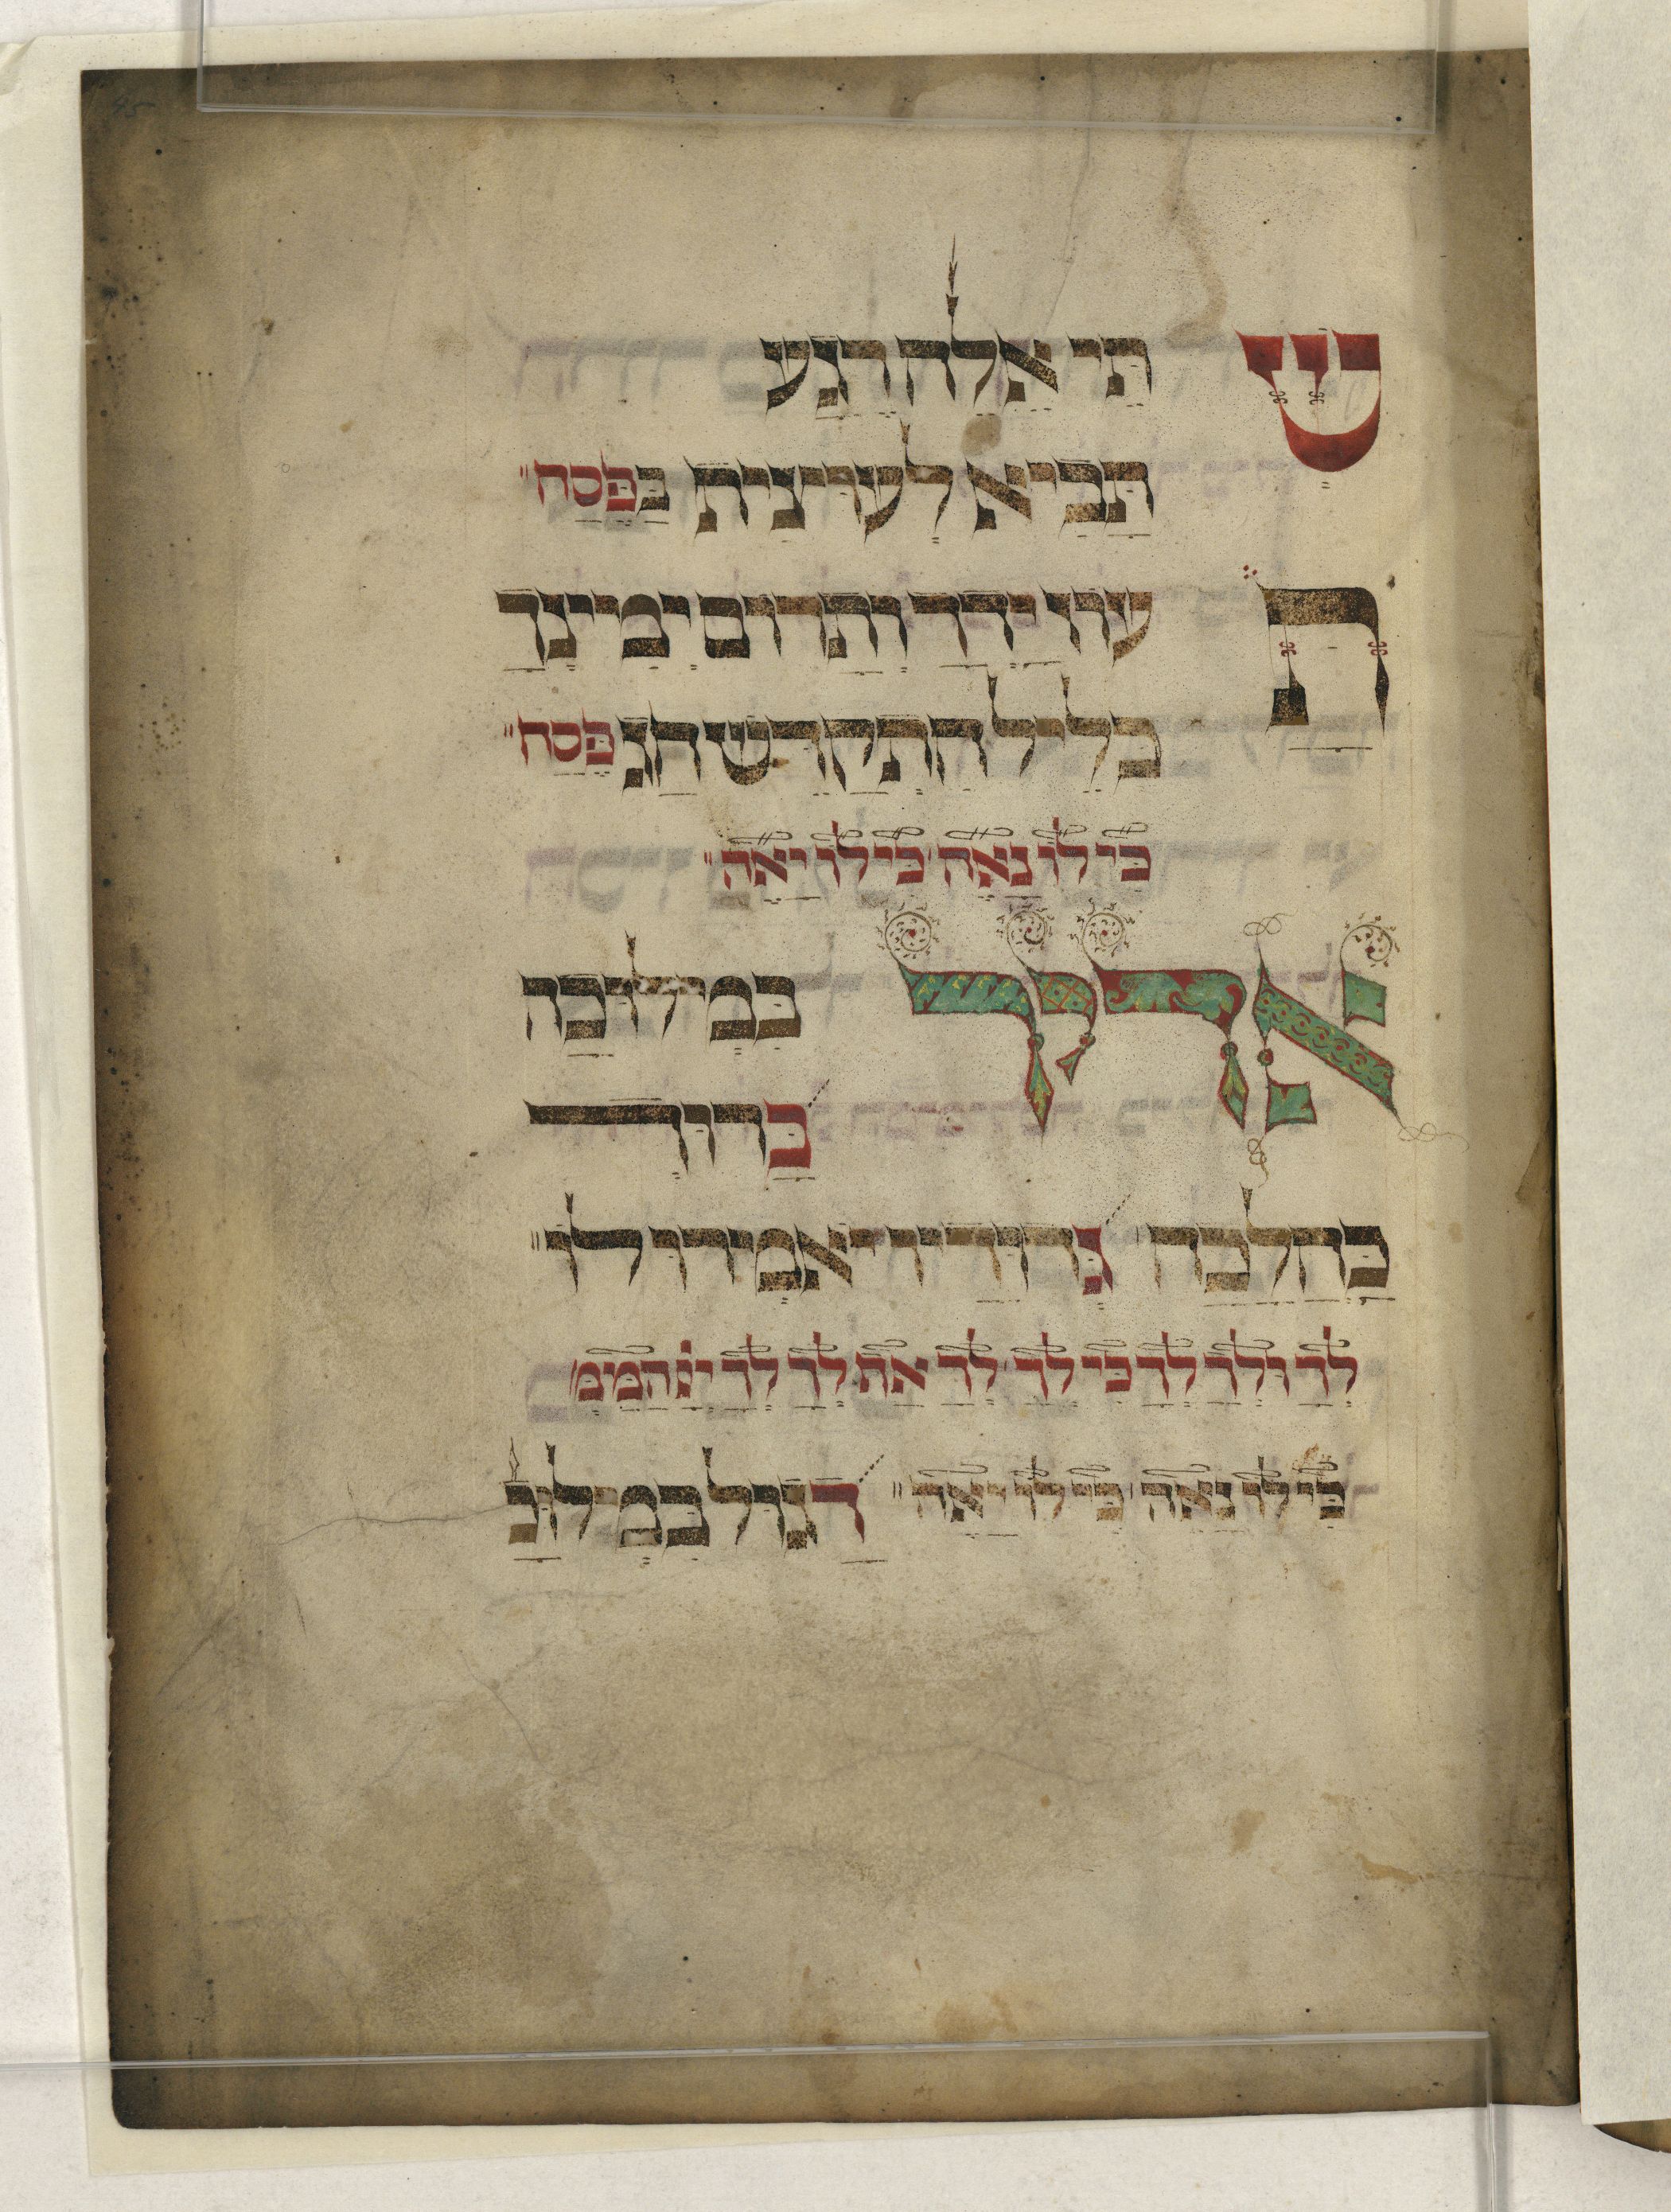 שתי אלה רגע
תביא לעוצית בפסח
תעוז ידך ותרום ימינך
כליל התקדש חג פסח
כי לו נאה כי לו יאה
אדיר במילוכה
בחור
כהלכה גדודיו יאמירו לו
לך ולך לך כי לך לך אף לך לך
כי לו נאה כי לו יאה דגול במילוכ